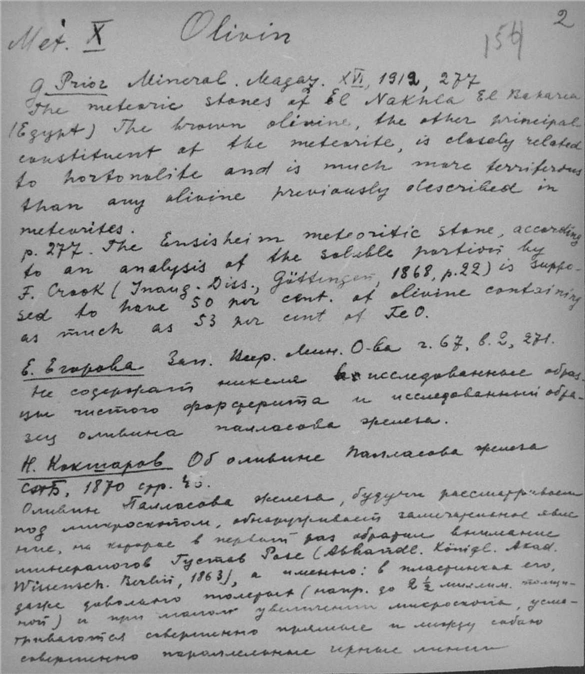 2
Met. X Olivin 154
g Prior Mineral. Magaz. XVI, 1912, 277
The meteoric stones of El Nakhla El Baharia
(Egypt) The brown olivine, the other principal
constituent of the meteorite, is closely related
to hortonolite and is much more terriferous
than any olivine previously described in
meteorites.
p. 277. The Ensisheim meteoritic stone, according
to an analysis of the soluble portion by
F. Crook (Inaug. Diss., Göttingen, 1868, p.22) is suppo-
sed to have 50 per cent. of olivine containing
as much as 53 per cent of FeO.
Е. Егорова Зап. Всер. Мин. О-ва ч. 67, в. 2, 271.
Не содержат никеля исследованные образ-
цы чистого форстерита и исследованный обра-
зец оливина палласова железа.
Н. Кокшаров Об оливине Палласова железа
СПБ, 1870 стр.
Оливин Палласова железа, будучи рассматриваем
под микроскопом, обнаруживает замечательное явле
ние, на которое в первый раз обратил внимание
минералогов Густав Розе (Abhandl. Königl. Akad.
Wissensch. Berlin, 1863), а именно: в пластинках его,
даже довольно толстых (напр. до 2 ½ миллим. толщи-
ной) и при малом увеличении микроскопа, усма-
триваются совершенно прямые и между собою
совершенно параллельные черные линии